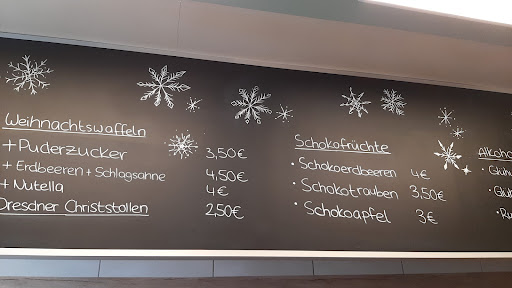 Weihnachtswaffeln
+ Puderzucker 3,50€
+ Erdbeeren + Schlagsahne 4,50€
+ Nutella 4€
Dresdner Christstollen 2,50€
Schokofrüchte
• Schokoerdbeeren 4€
• Schokotrauben 3,50€
• Schokoapfel 3€